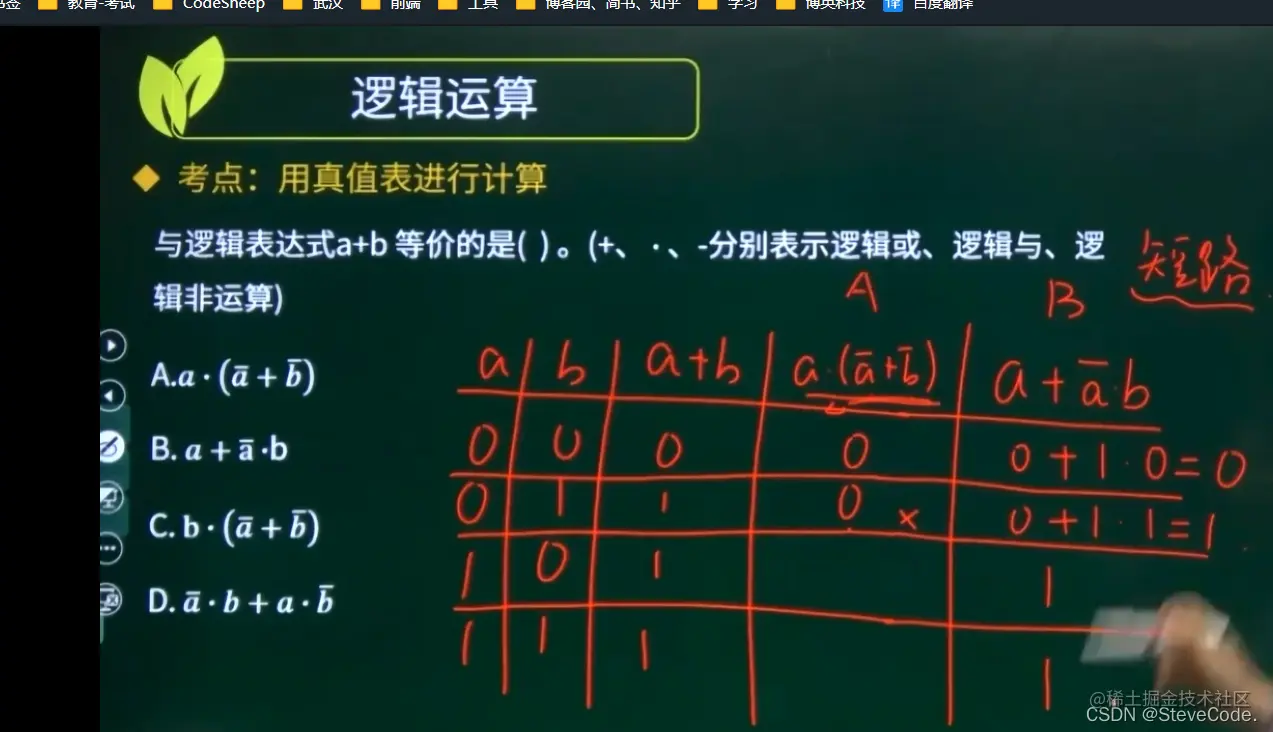 教育-考试 CodeSheep 武汉 前端 工具 博客园、简书、知乎 学习 博英科技 译 百度翻译
逻辑运算
考点：用真值表进行计算
与逻辑表达式a+b 等价的是( )。(+、·、-分别表示逻辑或、逻辑与、逻
辑非运算)
短路
A B
A.a·(ā + b̄)
B. a + ā·b
C. b·(ā + b̄)
D. ā·b + a·b̄
a b a+b a·(ā+b̄) a+ā·b
0 0 0 0 0+1·0=0
0 1 1 0 × 0+1·1=1
1 0 1 1
1 1 1 1
@稀土掘金技术社区
CSDN @SteveCode.